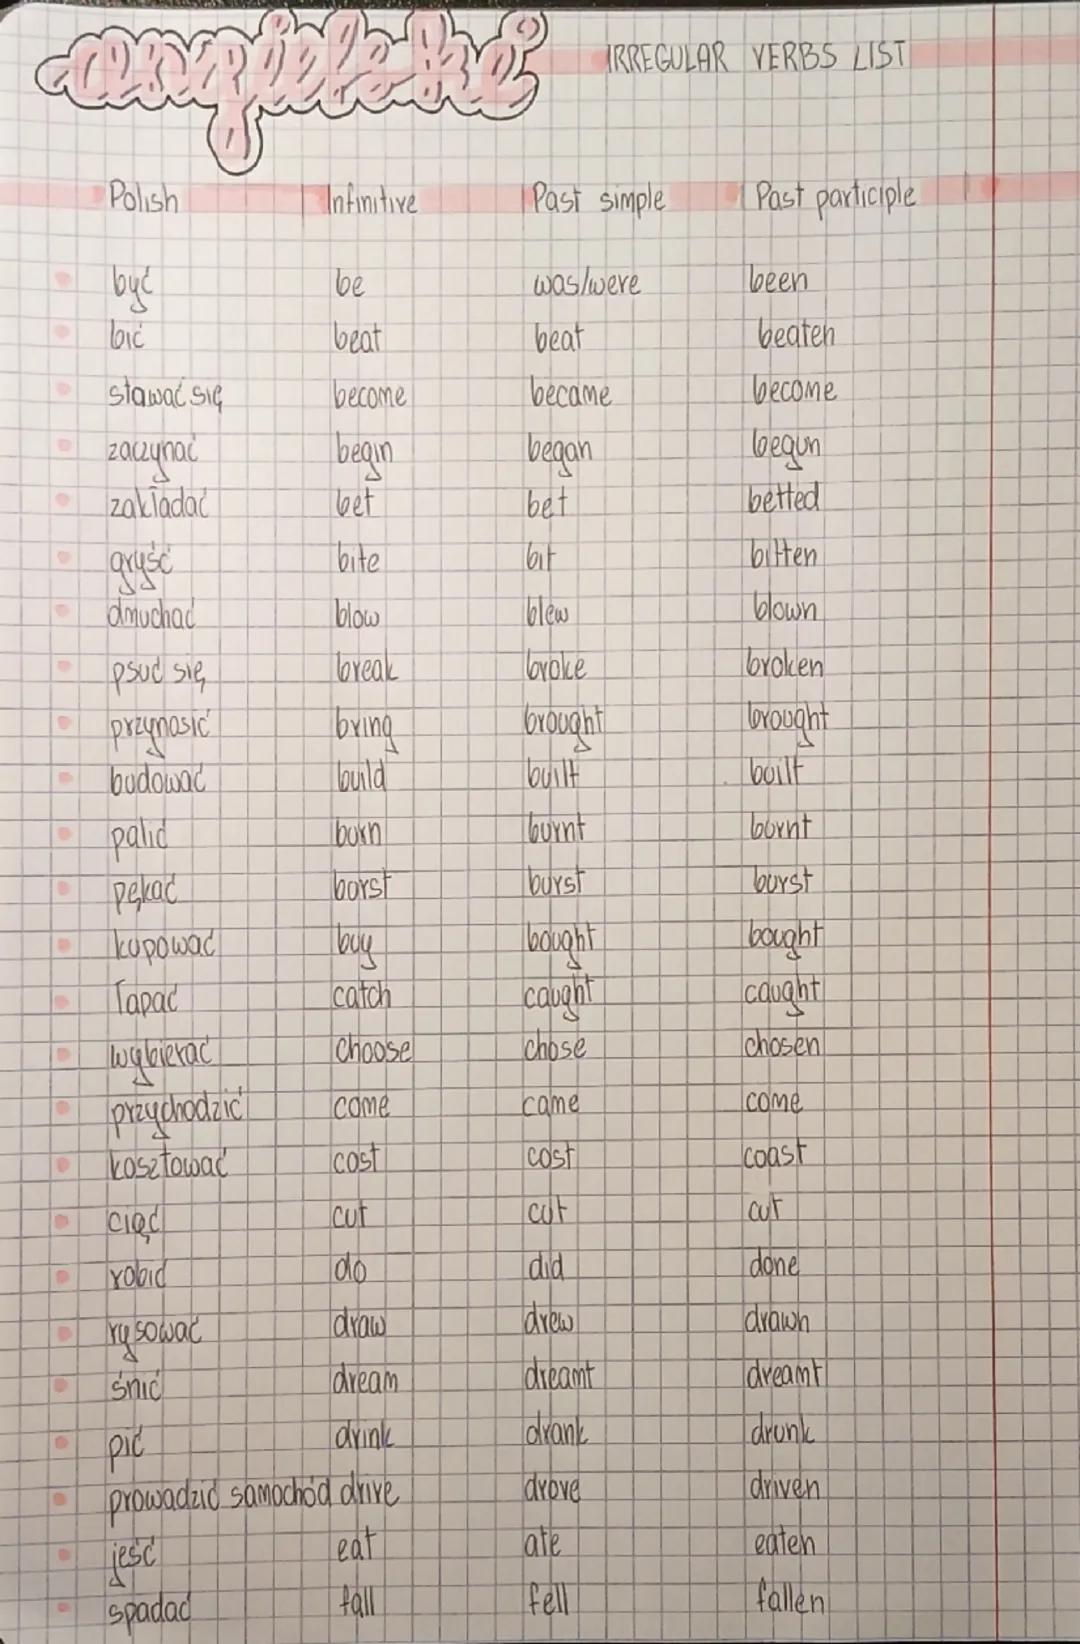 angielski IRREGULAR VERBS LIST
Polish Infinitive Past simple Past participle
być be was/were been
bić beat beat beaten
stawać się become became become
zaczynać begin began begun
zakładać bet bet betted
gryść bite bit bitten
dmuchać blow blew blown
psuć się break broke broken
przynosić bring brought brought
budować build built built
palić burn burnt burnt
pękać burst burst burst
kupować buy bought bought
łapać catch caught caught
wybierać choose chose chosen
przychodzić come came come
kosztować cost cost coast
ciąć cut cut cut
robić do did done
rysować draw drew drawn
śnić dream dreamt dreamt
pić drink drank drunk
prowadzić samochód drive drove driven
jeść eat ate eaten
spadać fall fell fallen